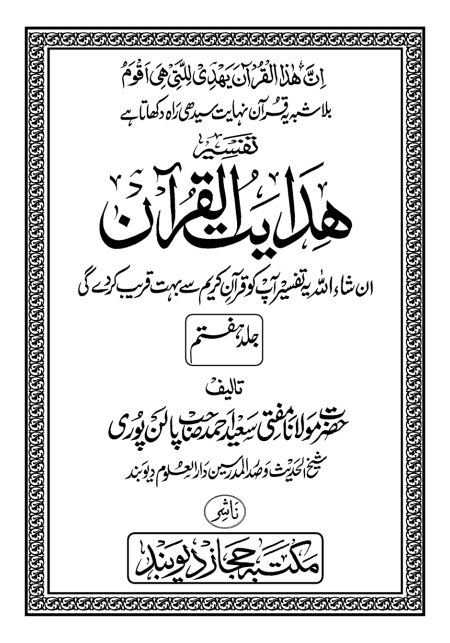 اِنَّ هٰذَا الْقُرْآنَ يَهْدِىْ لِلَّتِىْ هِىَ اَقْوَمُ
بلاشبہ یہ قرآن نہایت سیدھی راہ دکھاتا ہے
تفسیر
ہدایت القرآن
ان شاء اللہ یہ تفسیر آپ کو قرآنِ کریم سے بہت قریب کردے گی
جلد ہفتم
تالیف
حضرت مولانا مفتی سعید احمد صاحب پالن پوری
شیخ الحدیث وصدر المدرسین دارالعلوم دیوبند
ناشر
مکتبہ حجاز دیوبند